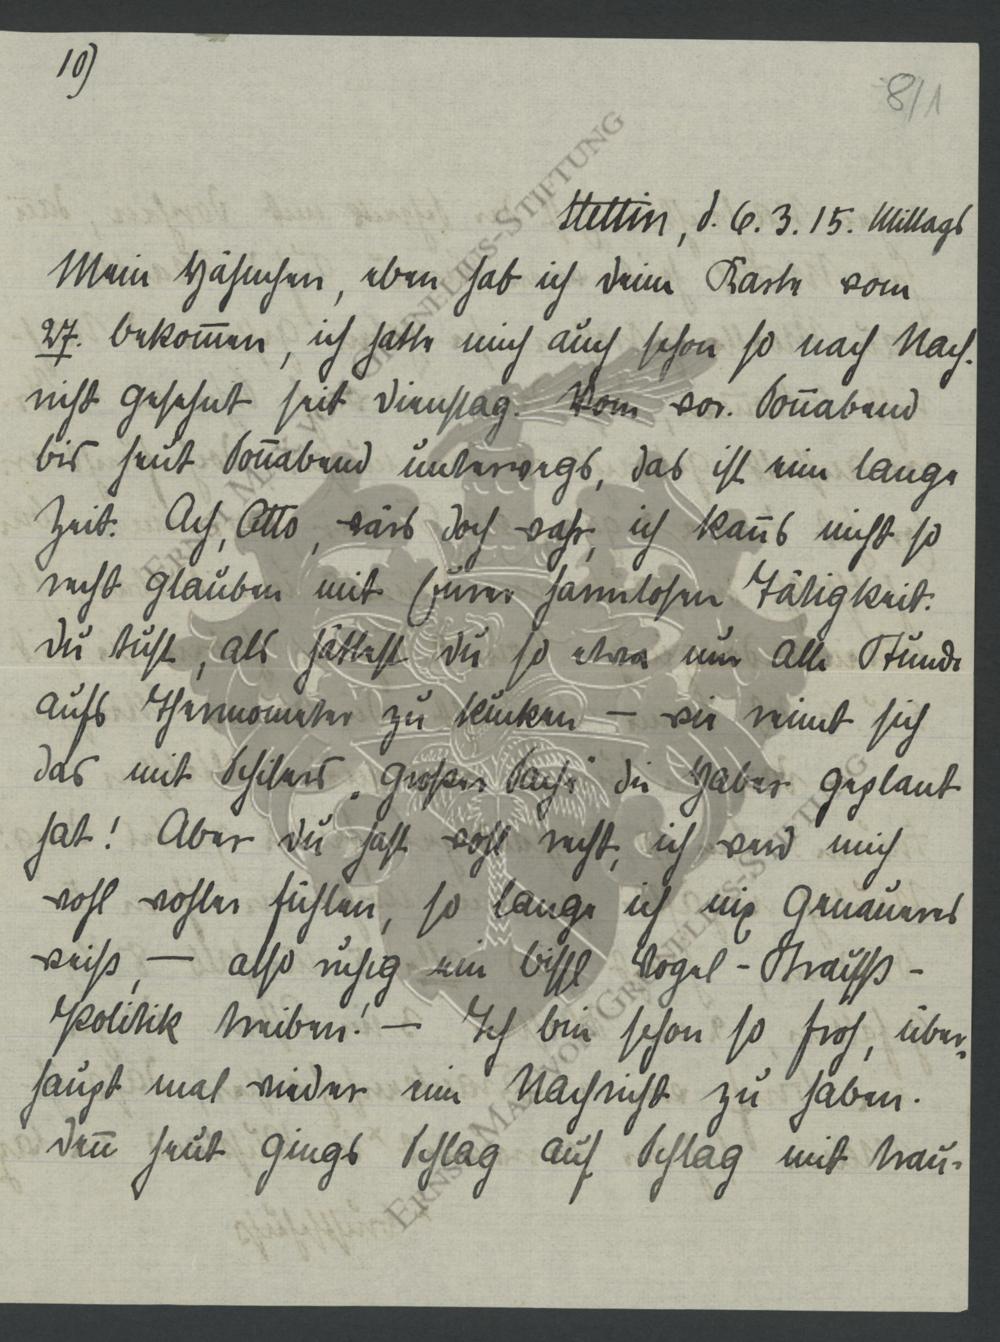 10)
8/1
Stettin, d. 6. 3. 15. Mittags
Mein Hähnchen, eben hab ich deine Karte vom
27. bekom̅en, ich hatte mich auch schon so nach Nach-
richt gesehnt seit Dienstag. Vom vor. Son̅abend
bis heut Son̅abend unterwegs, das ist eine lange
Zeit. Ach, Otto, wärs doch wahr, ich kan̅s nicht so
recht glauben mit Eurer harmlosen Tätigkeit.
Du tust, als hättest du so etwa nur alle Stunde
aufs Thermometer zu kucken – wie reimt sich
das mit Schilers „großer Sache" die Haber geplant
hat! Aber du hast wohl recht, ich werd mich
wohl wohler fühlen, so lange ich nix Genaueres
weiß, – also ruhig ein bissl Vogel-Strauß-
Politik treiben! – Ich bin schon so froh, über-
haupt mal wieder eine Nachricht zu haben.
Den̅ heut gings Schlag auf Schlag mit trau-
ERNST MAX VON GRUNELIUS-STIFTUNG
ERNST MAX VON GRUNELIUS-STIFTUNG